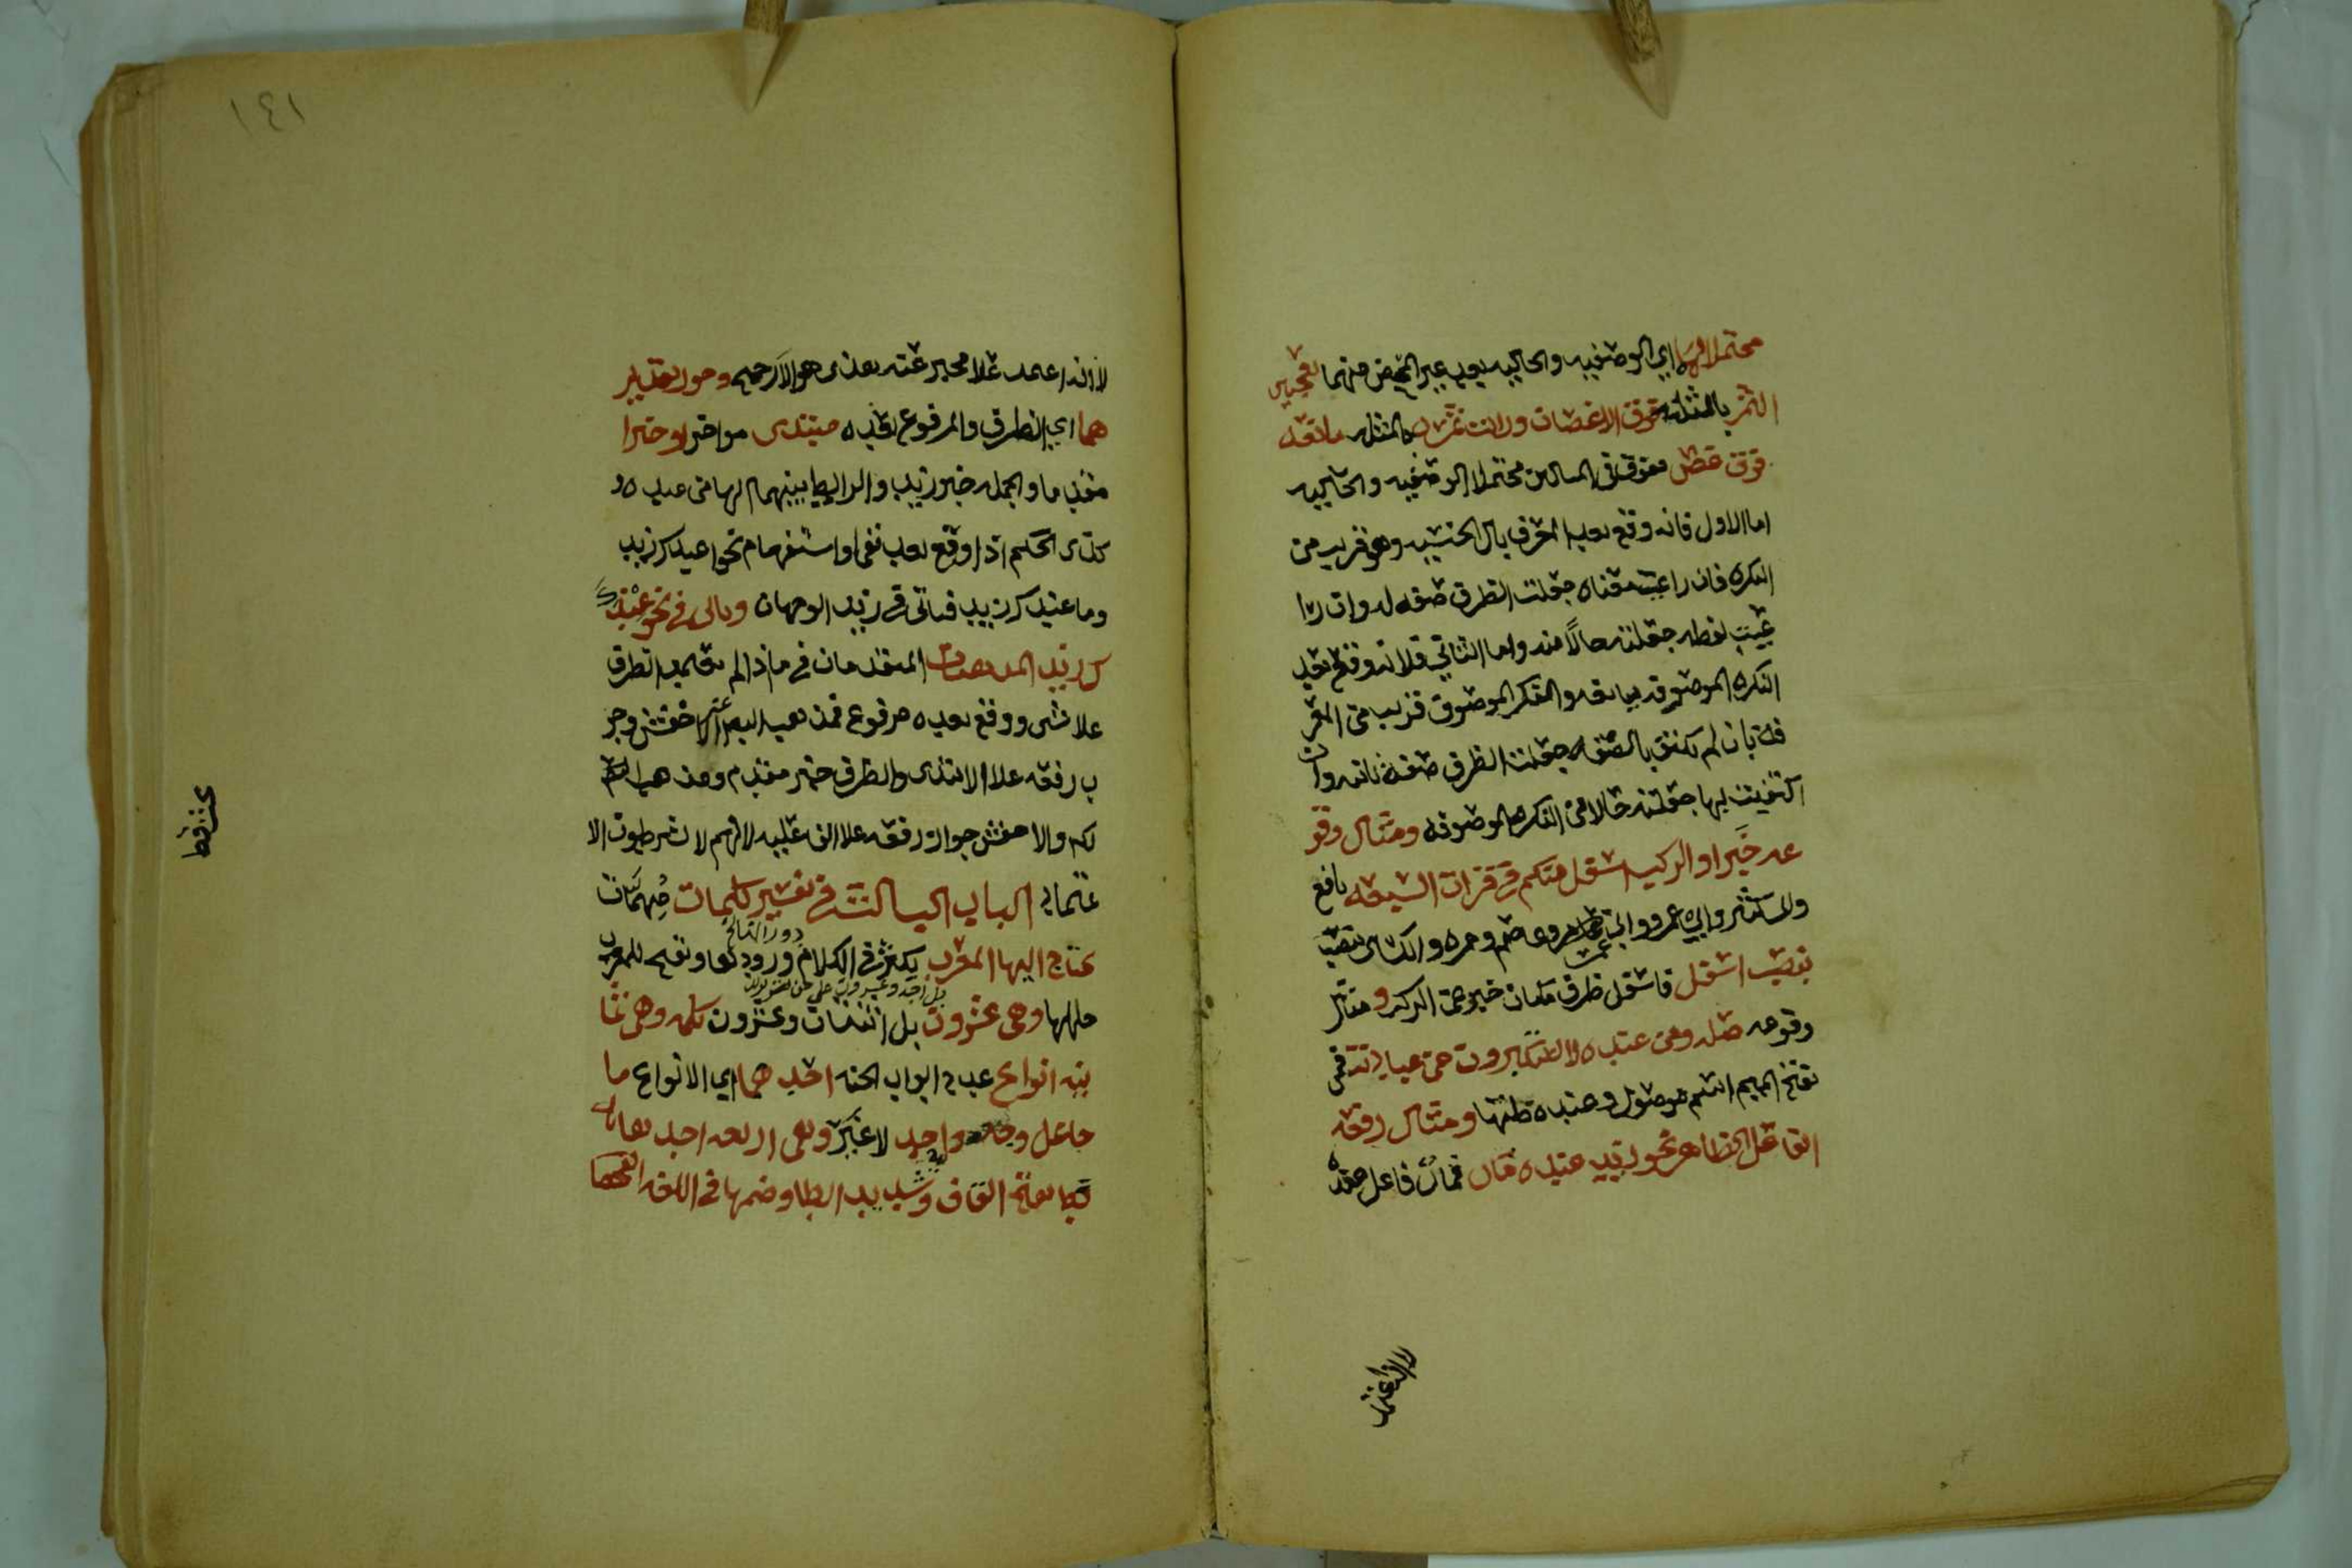 محتملا لهما اي الوصفيه والحاليه بعد غير المحض منهما يعجبني
الثمر بالمثلثه فوق الاغصان ورايت ثمره بالمثلثه يانعه
فوق غصن ففوق في المسالين محتملا الوصفيه والحاليه
اما الاول فانه وقع بعد المعرف بال الجنسيه وهو قريب من
النكره فان راعيت معناه جعلت الظرف صفه له وان را
عيت لفظه جعلته حالاً منه واما الثاني فلانه وقع بعد
النكره الموصوفه بيانعه والمنكر الموصوف قريب من المعر
فه بان لم تكتف بالصفه جعلت الظرف صفة ثانيه وان
اكتفيت بها جعلته حالا من النكره الموصوفه ومثال وقو
عه خبرا والركب اسفل منكم في قرات السبعه نافع
وابن كثير وابي عمرو وابن عامر وعاصم وحمزه والكساي بنصب
بنصب اسفل فاسفل ظرف مكان خبر عن الركب ومثال
وقوعه صله ومن عنده لا يستكبرون عن عبادته فمن
بفتح الميم اسم موصول وعنده صلتها ومثال رفعه
الفاعل الظاهر نحو زيد عنده مال فمال فاعل عنده
لانه اعتمد
١٤١
لانه اعتمد علا مخبر عنه بعندي هو الارجح وجوز تقدير
هما اي الظرف والمرفوع بعده مبتدى مواخر او خبرا
مقدما والجمله خبر زيد والرابط بينهما الها من عنده و
كذى الحكم اذا وقع بعد نفي او استفهام نحو اعندك زيد
وما عندك زيد فياتي في زيد الوجهان وياتي في نحو عند
ك زيد المذهبان المتقدمان في ما اذا لم يعتمد الظرف
علا شي ووقع بعده مرفوع فمذهب الاخفش وجو
ب رفعه علا الابتدى والظرف خبر مقدم ومذهب
لكو والاخفش جواز رفعه علا الفاعليه لانهم لا يشرطون الا
عتماد الباب الثالث في تفسير كلمات مهمات
يحتاج اليها المعرب يكثر في الكلام ورودها ويقبح للمعرب
دورانها
جهلها وهي عشرون بل اثنتان وعشرون كلمه وهي ثما
نيه انواع عدد ابواب الجنه احدها اي الانواع ما
جا علا وجه واحد لا غير وهي اربعه احدها
قط بفتح القاف وتشديد الطا وضمها في اللغه الفصحا